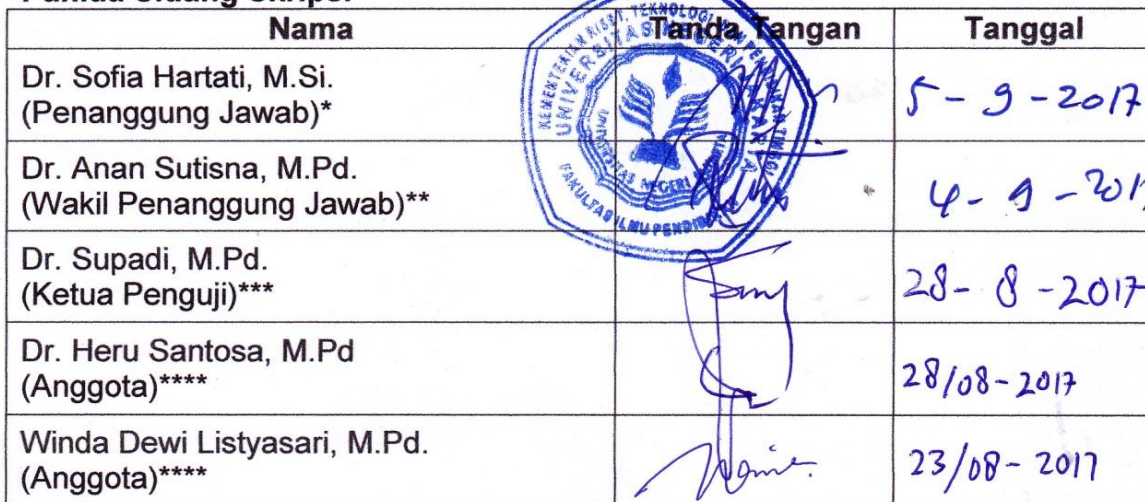 Panitia Sidang Skripsi
Nama Tanda Tangan Tanggal
Dr. Sofia Hartati, M.Si.
(Penanggung Jawab)* 5 - 9 - 2017
Dr. Anan Sutisna, M.Pd.
(Wakil Penanggung Jawab)** 4 - 9 - 201
Dr. Supadi, M.Pd.
(Ketua Penguji)*** 28 - 8 - 2017
Dr. Heru Santosa, M.Pd
(Anggota)**** 28/08 - 2017
Winda Dewi Listyasari, M.Pd.
(Anggota)**** 23/08 - 2017
KEMENTERIAN RISET, TEKNOLOGI
UNIVERSITAS NEGERI
UNIVERSITAS NEGERI
FAKULTAS ILMU